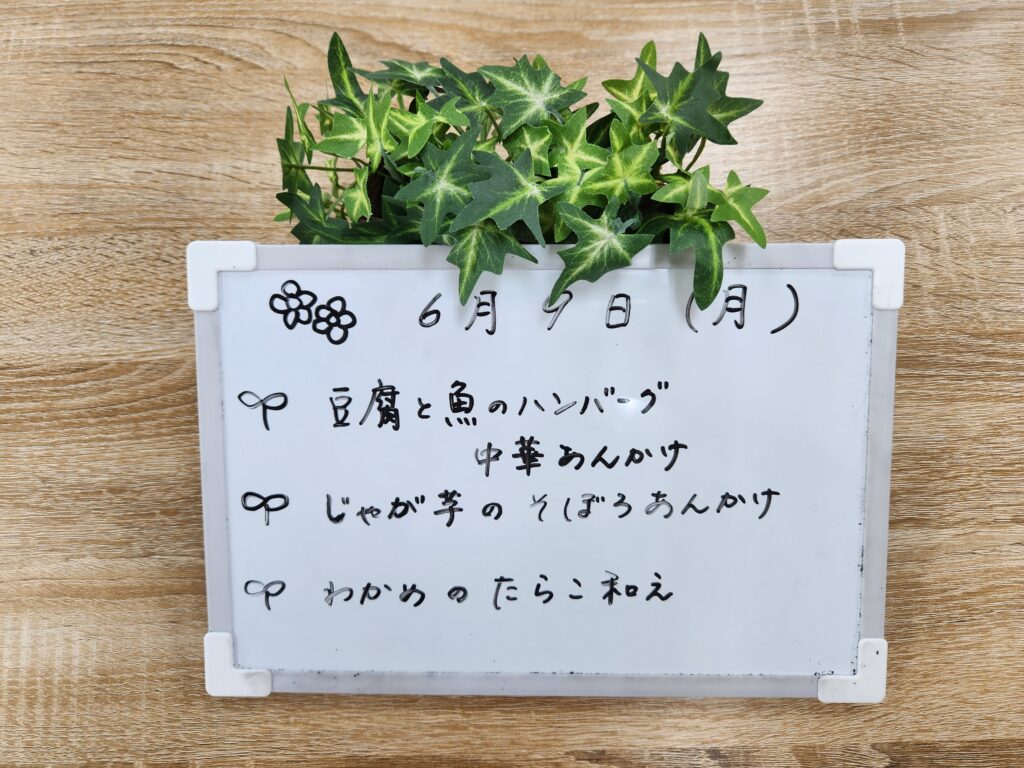 6月9日(月)
豆腐と魚のハンバーグ
中華あんかけ
じゃが芋のそぼろあんかけ
わかめのたらこ和え